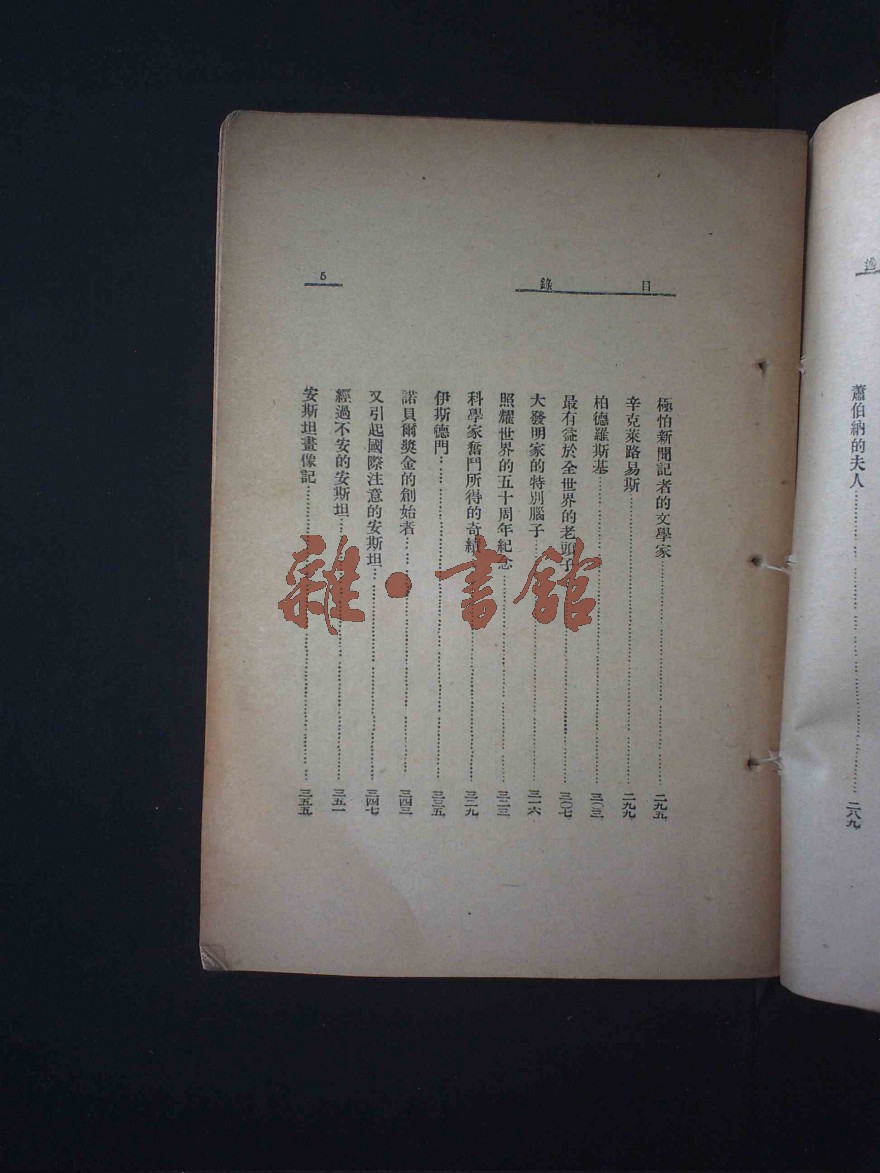 蕭伯納的夫人……二八九
目錄
5
極怕新聞記者的文學家……二九五
辛克萊路易斯……二九九
柏德羅斯基……三〇三
最有益於全世界的老頭子……三〇七
大發明家的特別腦子……三一六
照耀世界的五十周年紀念……三二三
科學家奮鬥所得的奇績……三二九
伊斯德門……三三五
諾貝爾獎金的創始者……三四三
又引起國際注意的安斯坦……三四七
經過不安的安斯坦……三五一
安斯坦畫像記……三五五
雜·書館